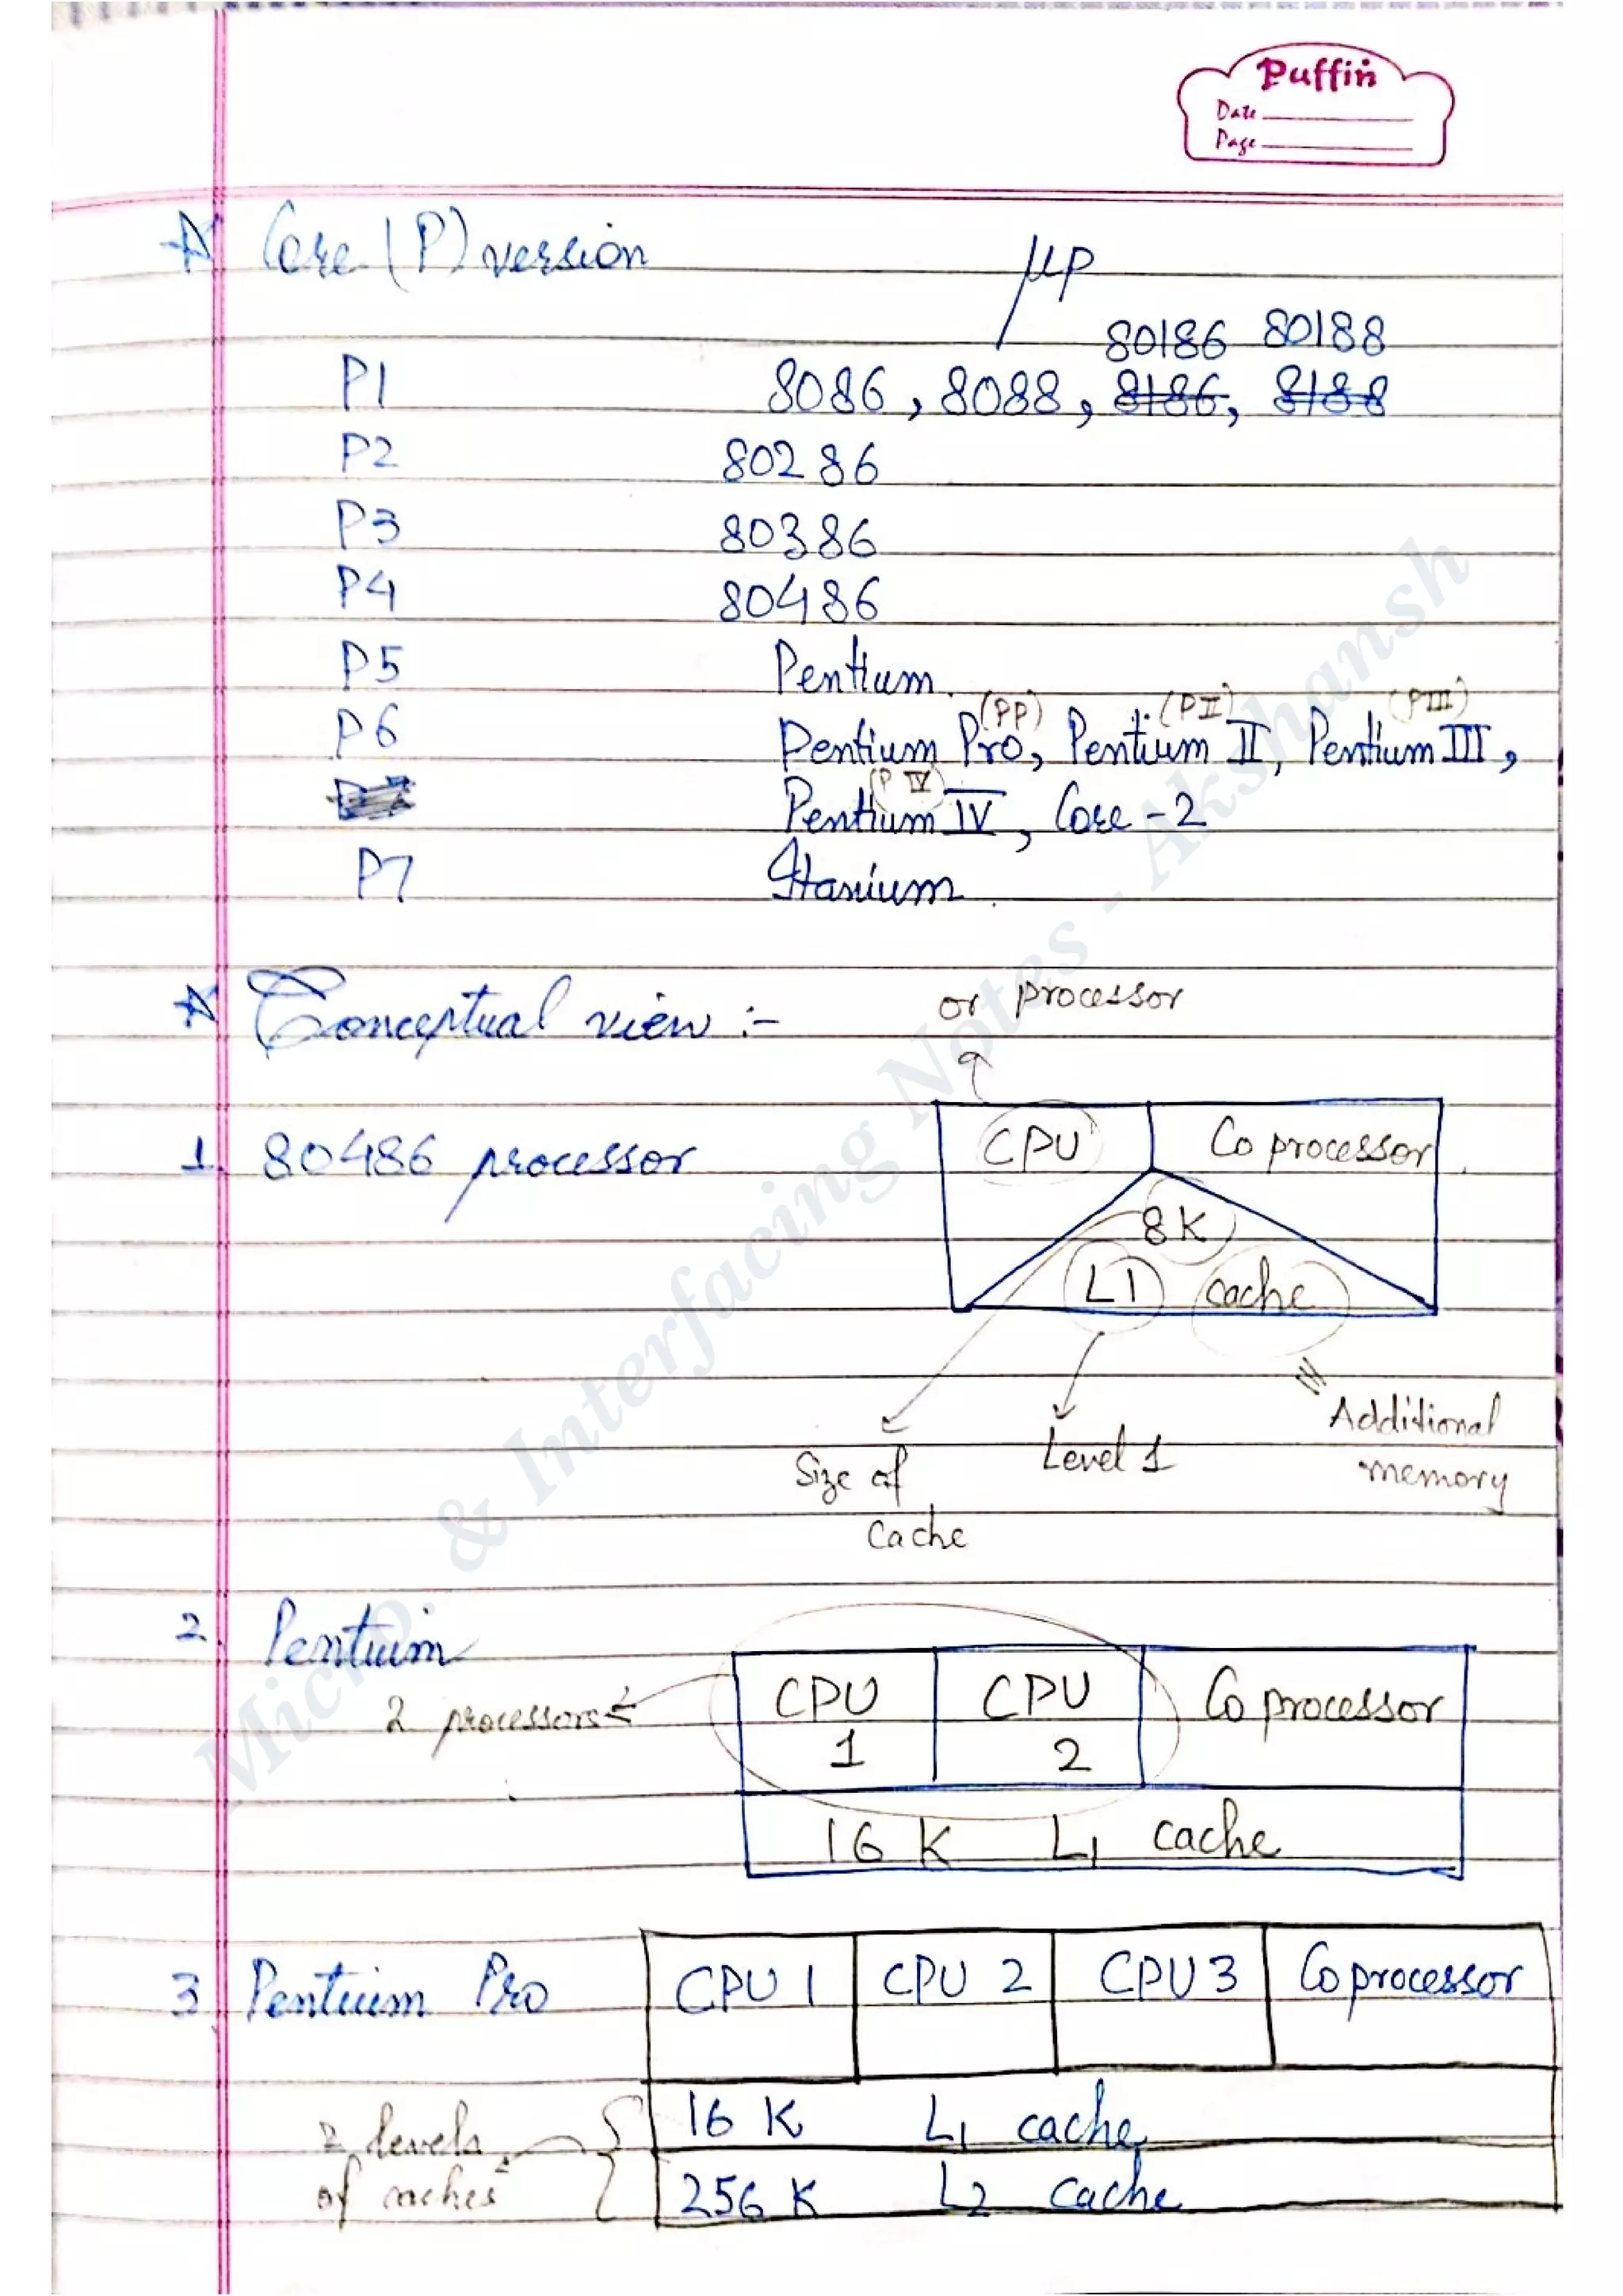 Puffin
Date
Page
Core (P) version
μP
80186 80188
P1 8086, 8088, 8186, 8188
P2 80286
P3 80386
P4 80486
P5 Pentium.
(PP) (PII) (PIII)
P6 Pentium Pro, Pentium II, Pentium III,
(P IV)
Pentium IV, Core-2
P7 Itanium.
Conceptual view :-
or processor
1. 80486 processor
CPU Co processor
8K
L1 cache
Additional
memory
Size of
Cache
Level 1
2. Pentuim
2 processors
CPU 1
CPU 2
Co processor
16 K L1 cache
3. Pentuim Pro
CPU 1 CPU 2 CPU 3 Co processor
2 levels
of caches
16 K L1 cache
256 K L2 cache
Micro. & Interfacing Notes - Akshansh